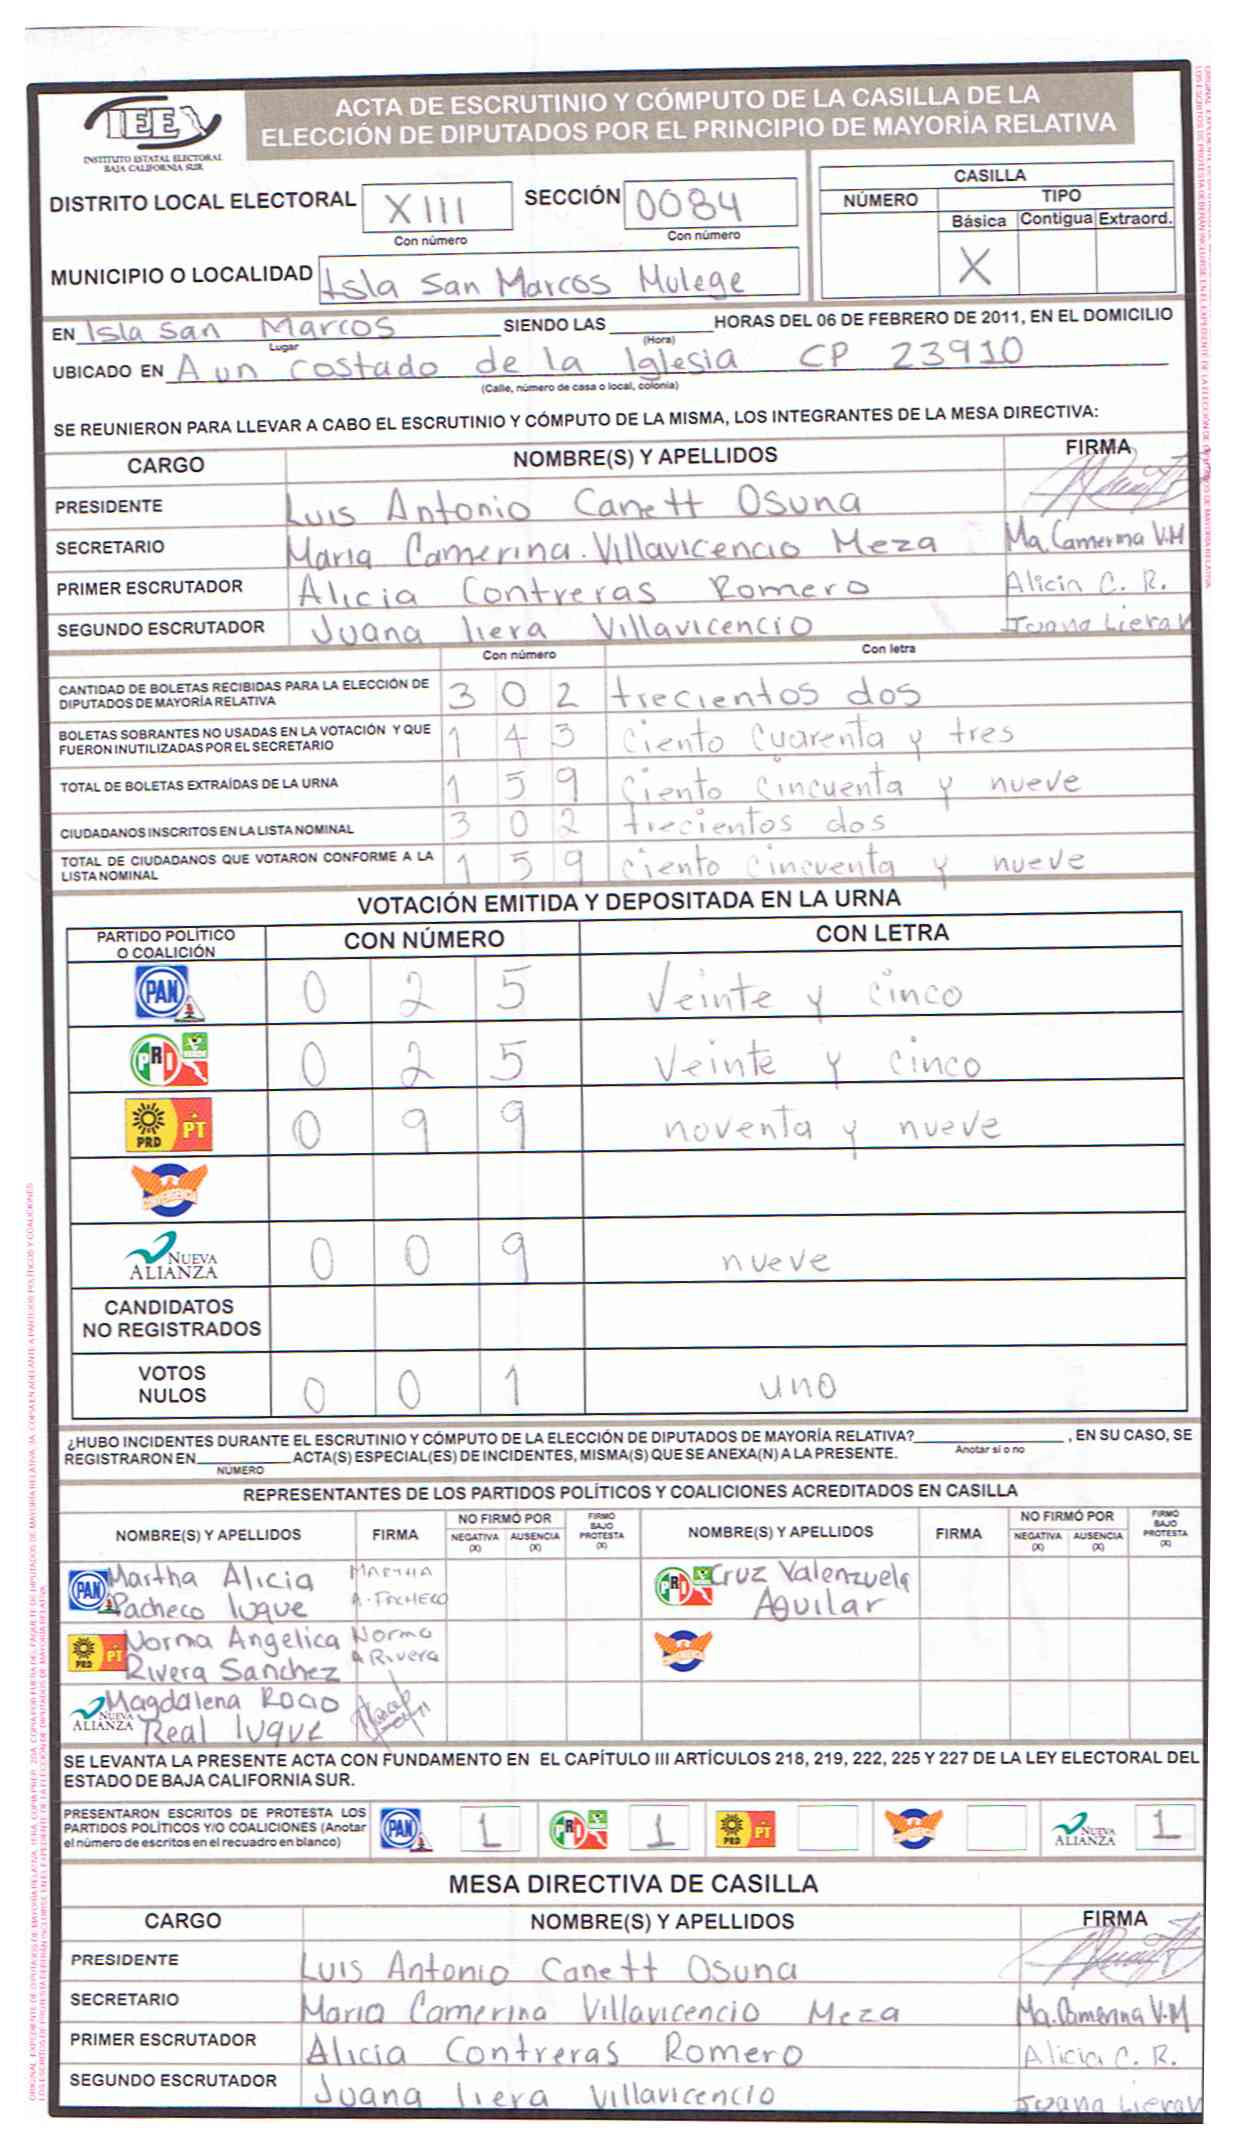 ACTA DE ESCRUTINIO Y CÓMPUTO DE LA CASILLA DE LA
ELECCIÓN DE DIPUTADOS POR EL PRINCIPIO DE MAYORÍA RELATIVA
IEE
INSTITUTO ESTATAL ELECTORAL
BAJA CALIFORNIA SUR
DISTRITO LOCAL ELECTORAL XIII SECCIÓN 0084
Con número Con número
CASILLA
NÚMERO TIPO
Básica Contigua Extraord.
X
MUNICIPIO O LOCALIDAD Isla San Marcos Mulege
EN Isla san Marcos SIENDO LAS HORAS DEL 06 DE FEBRERO DE 2011, EN EL DOMICILIO
Lugar (Hora)
UBICADO EN A un costado de la Iglesia CP 23910
(Calle, número de casa o local, colonia)
SE REUNIERON PARA LLEVAR A CABO EL ESCRUTINIO Y CÓMPUTO DE LA MISMA, LOS INTEGRANTES DE LA MESA DIRECTIVA:
CARGO NOMBRE(S) Y APELLIDOS FIRMA
PRESIDENTE Luis Antonio Canett Osuna
SECRETARIO Maria Camerina Villavicencio Meza Ma. Camerina V.M
PRIMER ESCRUTADOR Alicia Contreras Romero Alicia C. R.
SEGUNDO ESCRUTADOR Juana liera Villavicencio Juana Liera V
Con número Con letra
CANTIDAD DE BOLETAS RECIBIDAS PARA LA ELECCIÓN DE
DIPUTADOS DE MAYORÍA RELATIVA 3 0 2 trecientos dos
BOLETAS SOBRANTES NO USADAS EN LA VOTACIÓN Y QUE
FUERON INUTILIZADAS POR EL SECRETARIO 1 4 3 ciento cuarenta y tres
TOTAL DE BOLETAS EXTRAÍDAS DE LA URNA 1 5 9 ciento cincuenta y nueve
CIUDADANOS INSCRITOS EN LA LISTA NOMINAL 3 0 2 trecientos dos
TOTAL DE CIUDADANOS QUE VOTARON CONFORME A LA
LISTA NOMINAL 1 5 9 ciento cincuenta y nueve
VOTACIÓN EMITIDA Y DEPOSITADA EN LA URNA
PARTIDO POLÍTICO
O COALICIÓN CON NÚMERO CON LETRA
PAN 0 2 5 Veinte y cinco
PRI 0 2 5 Veinte y cinco
PRD PT 0 9 9 noventa y nueve
CONVERGENCIA
NUEVA ALIANZA 0 0 9 nueve
CANDIDATOS
NO REGISTRADOS
VOTOS
NULOS 0 0 1 uno
¿HUBO INCIDENTES DURANTE EL ESCRUTINIO Y CÓMPUTO DE LA ELECCIÓN DE DIPUTADOS DE MAYORÍA RELATIVA? , EN SU CASO, SE
Anotar sí o no
REGISTRARON EN ACTA(S) ESPECIAL(ES) DE INCIDENTES, MISMA(S) QUE SE ANEXA(N) A LA PRESENTE.
NÚMERO
REPRESENTANTES DE LOS PARTIDOS POLÍTICOS Y COALICIONES ACREDITADOS EN CASILLA
NOMBRE(S) Y APELLIDOS FIRMA NO FIRMÓ POR NEGATIVA (X) AUSENCIA (X) FIRMÓ BAJO PROTESTA (X) NOMBRE(S) Y APELLIDOS FIRMA NO FIRMÓ POR NEGATIVA (X) AUSENCIA (X) FIRMÓ BAJO PROTESTA (X)
PAN Martha Alicia MARTHA PRI Cruz Valenzuela
Pacheco luque A. PACHECO Aguilar
PRD PT Norma Angelica Norma
Rivera Sanchez A Rivera
NUEVA ALIANZA Magdalena Rocio
Real luque
SE LEVANTA LA PRESENTE ACTA CON FUNDAMENTO EN EL CAPÍTULO III ARTÍCULOS 218, 219, 222, 225 Y 227 DE LA LEY ELECTORAL DEL
ESTADO DE BAJA CALIFORNIA SUR.
PRESENTARON ESCRITOS DE PROTESTA LOS
PARTIDOS POLÍTICOS Y/O COALICIONES (Anotar
el número de escritos en el recuadro en blanco) PAN 1 PRI 1 PRD PT NUEVA ALIANZA 1
MESA DIRECTIVA DE CASILLA
CARGO NOMBRE(S) Y APELLIDOS FIRMA
PRESIDENTE Luis Antonio Canett Osuna
SECRETARIO Maria Camerina Villavicencio Meza Ma. Camerina V.M
PRIMER ESCRUTADOR Alicia Contreras Romero Alicia C. R.
SEGUNDO ESCRUTADOR Juana liera Villavicencio Juana Liera V